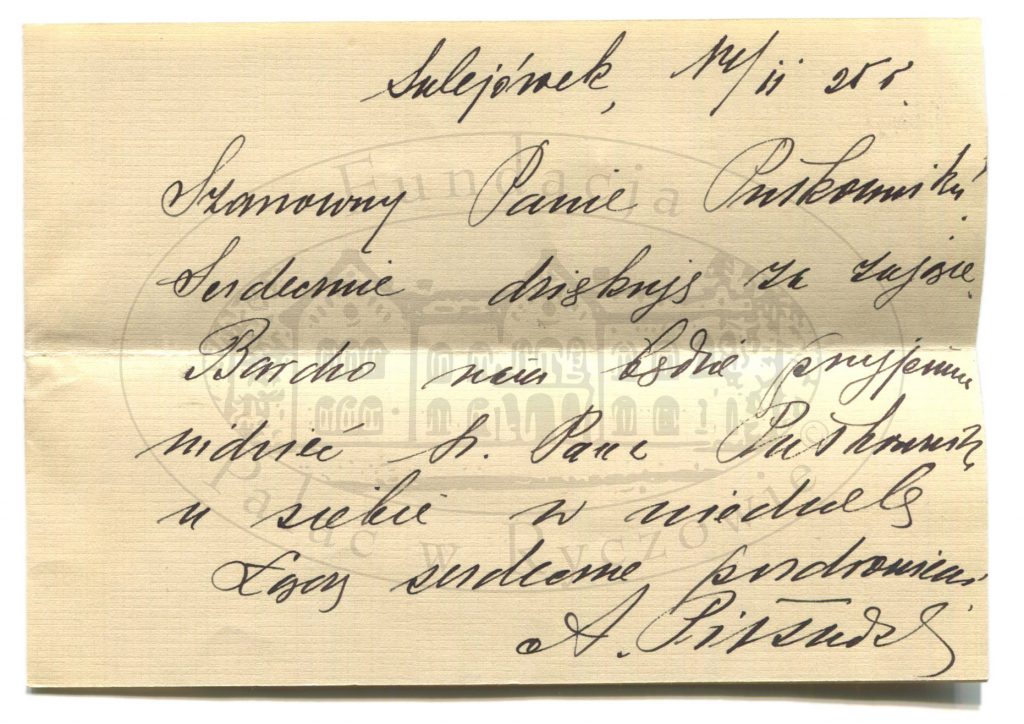 Sulejówek, 14/II 25 r.
Szanowny Panie Putkowniku!
Serdecznie dziękuję za zajęcie.
Bardzo nam będzie przyjemnie
widzieć Sz. Pana
u siebie w niedzielę
Łączę serdeczne pozdrowienia
A. Piłsudska
Fundacja
Pałac w Ryczowie ©